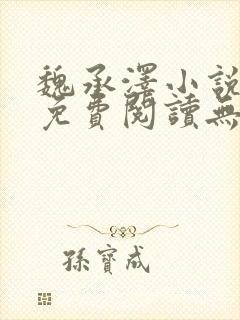 魏承澤小說
免費閱讀無
孫寶成